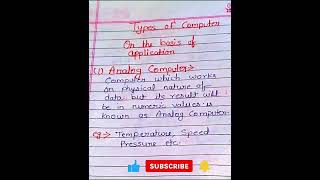 Types of Computer
On the basis of
application
(1) Analog Computer :-
Computer which works
on physical nature of
data but its result will
be in numeric values is
known as Analog Computer.
eg :- Temperature, Speed
Pressure etc.
SUBSCRIBE